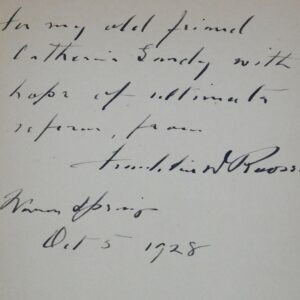 For my old friend
Catherine Gandy with
hope of ultimate
reform, from
Franklin D Roos
Warm Springs
Oct 5 1928